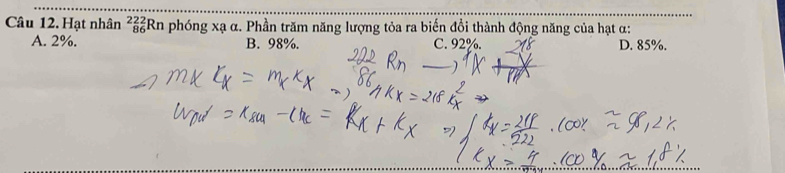 Câu 12. Hạt nhân ²²²₈₆Rn phóng xạ α. Phần trăm năng lượng tỏa ra biến đổi thành động năng của hạt α:
A. 2%. B. 98%. C. 92%. D. 85%.
222 Rn → ⁴X + 218
86
mX KX = mX KX => 4KX = 218 KX =>
= KX + KX => KX = 218/222 .100% ≈ 98,2%
KX = 4/222 .100% ≈ 1,8%